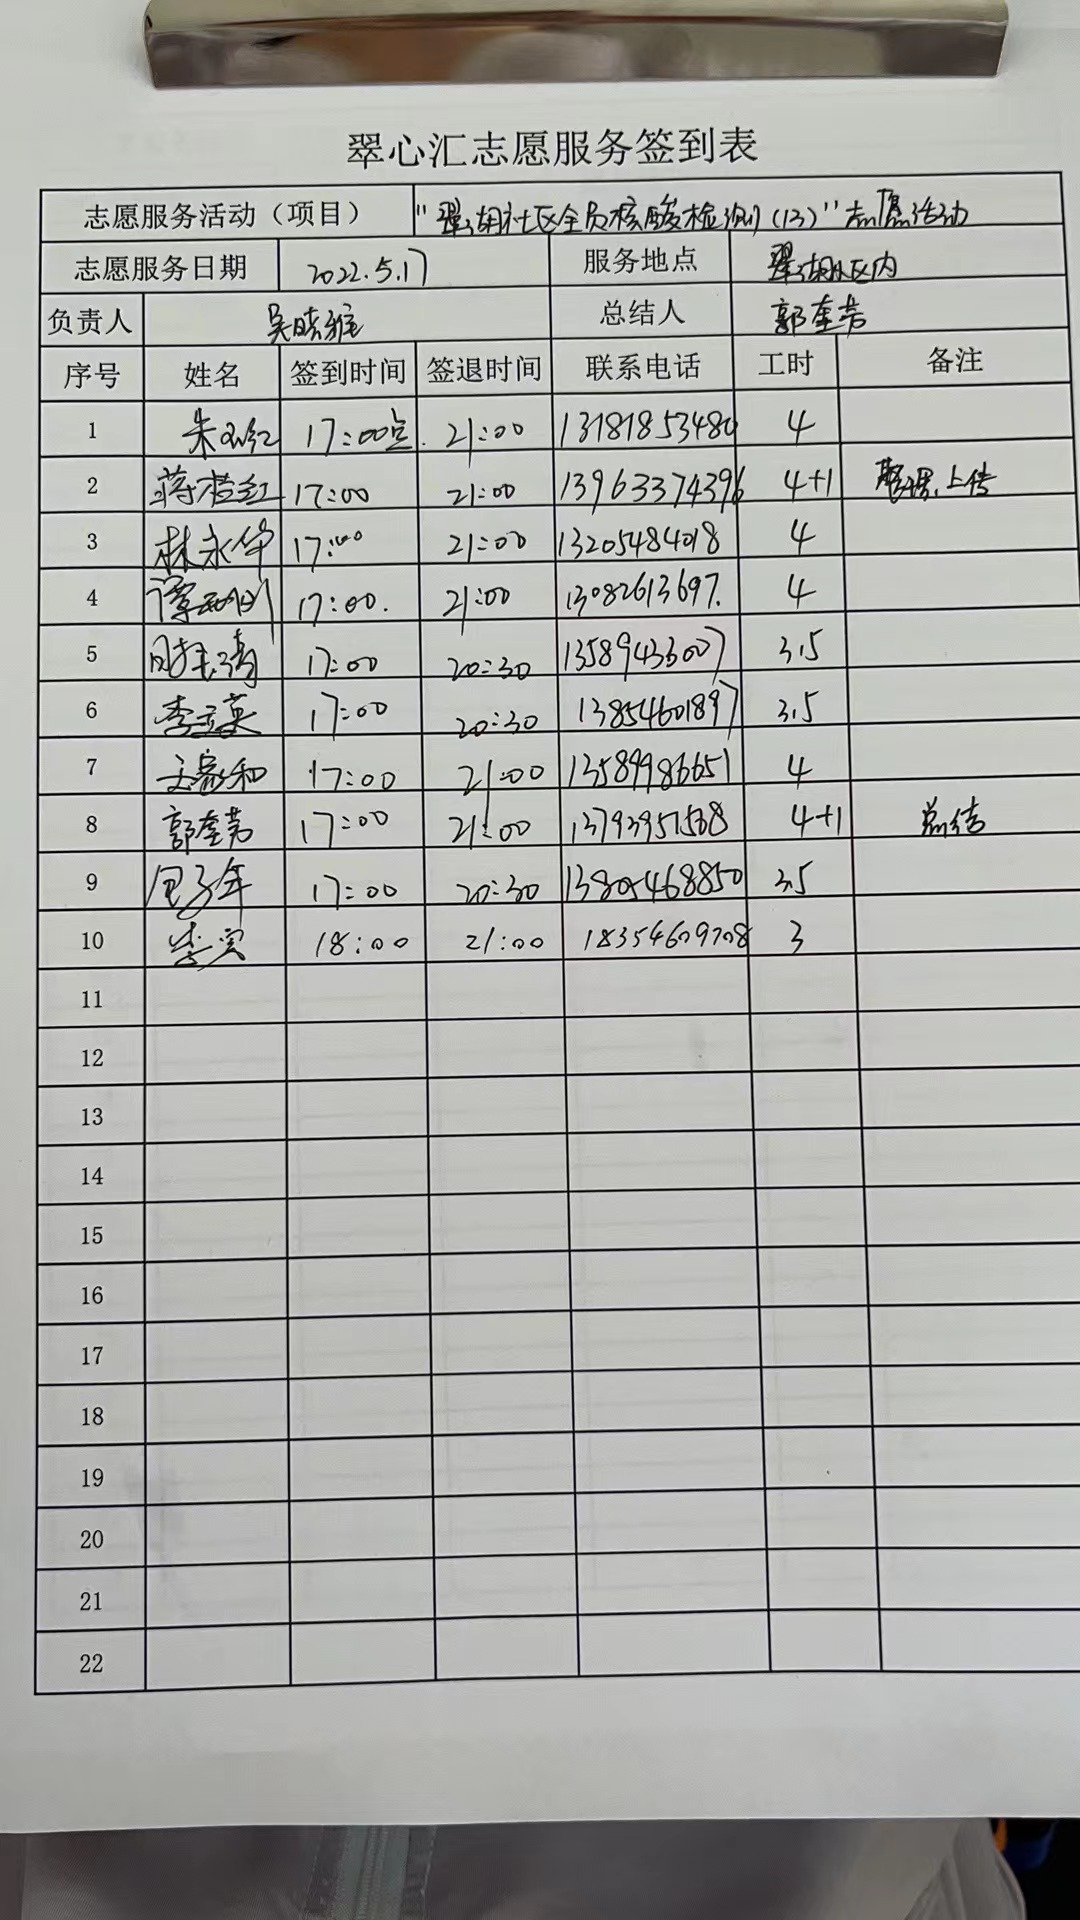 翠心汇志愿服务签到表
志愿服务活动（项目） "翠湖社区全员核酸检测（13）"志愿活动
志愿服务日期 2022.5.17 服务地点 翠湖社区内
负责人 吴晓雅 总结人 郭奎芳
序号 姓名 签到时间 签退时间 联系电话 工时 备注
1 朱 红 17:00点. 21:00 13181853480 4
2 蒋桂红 17:00 21:00 13963374396 4+1 整理、上传
3 林永华 17:00 21:00 13205484018 4
4 谭 17:00. 21:00 13082613697. 4
5 17:00 20:30 13589433007 3.5
6 李玉英 17:00 20:30 13854601897 3.5
7 家和 17:00 21:00 13589986651 4
8 郭奎芳 17:00 21:00 13793951568 4+1 总结
9 17:00 20:30 13805468850 3.5
10 18:00 21:00 18354609708 3
11
12
13
14
15
16
17
18
19
20
21
22